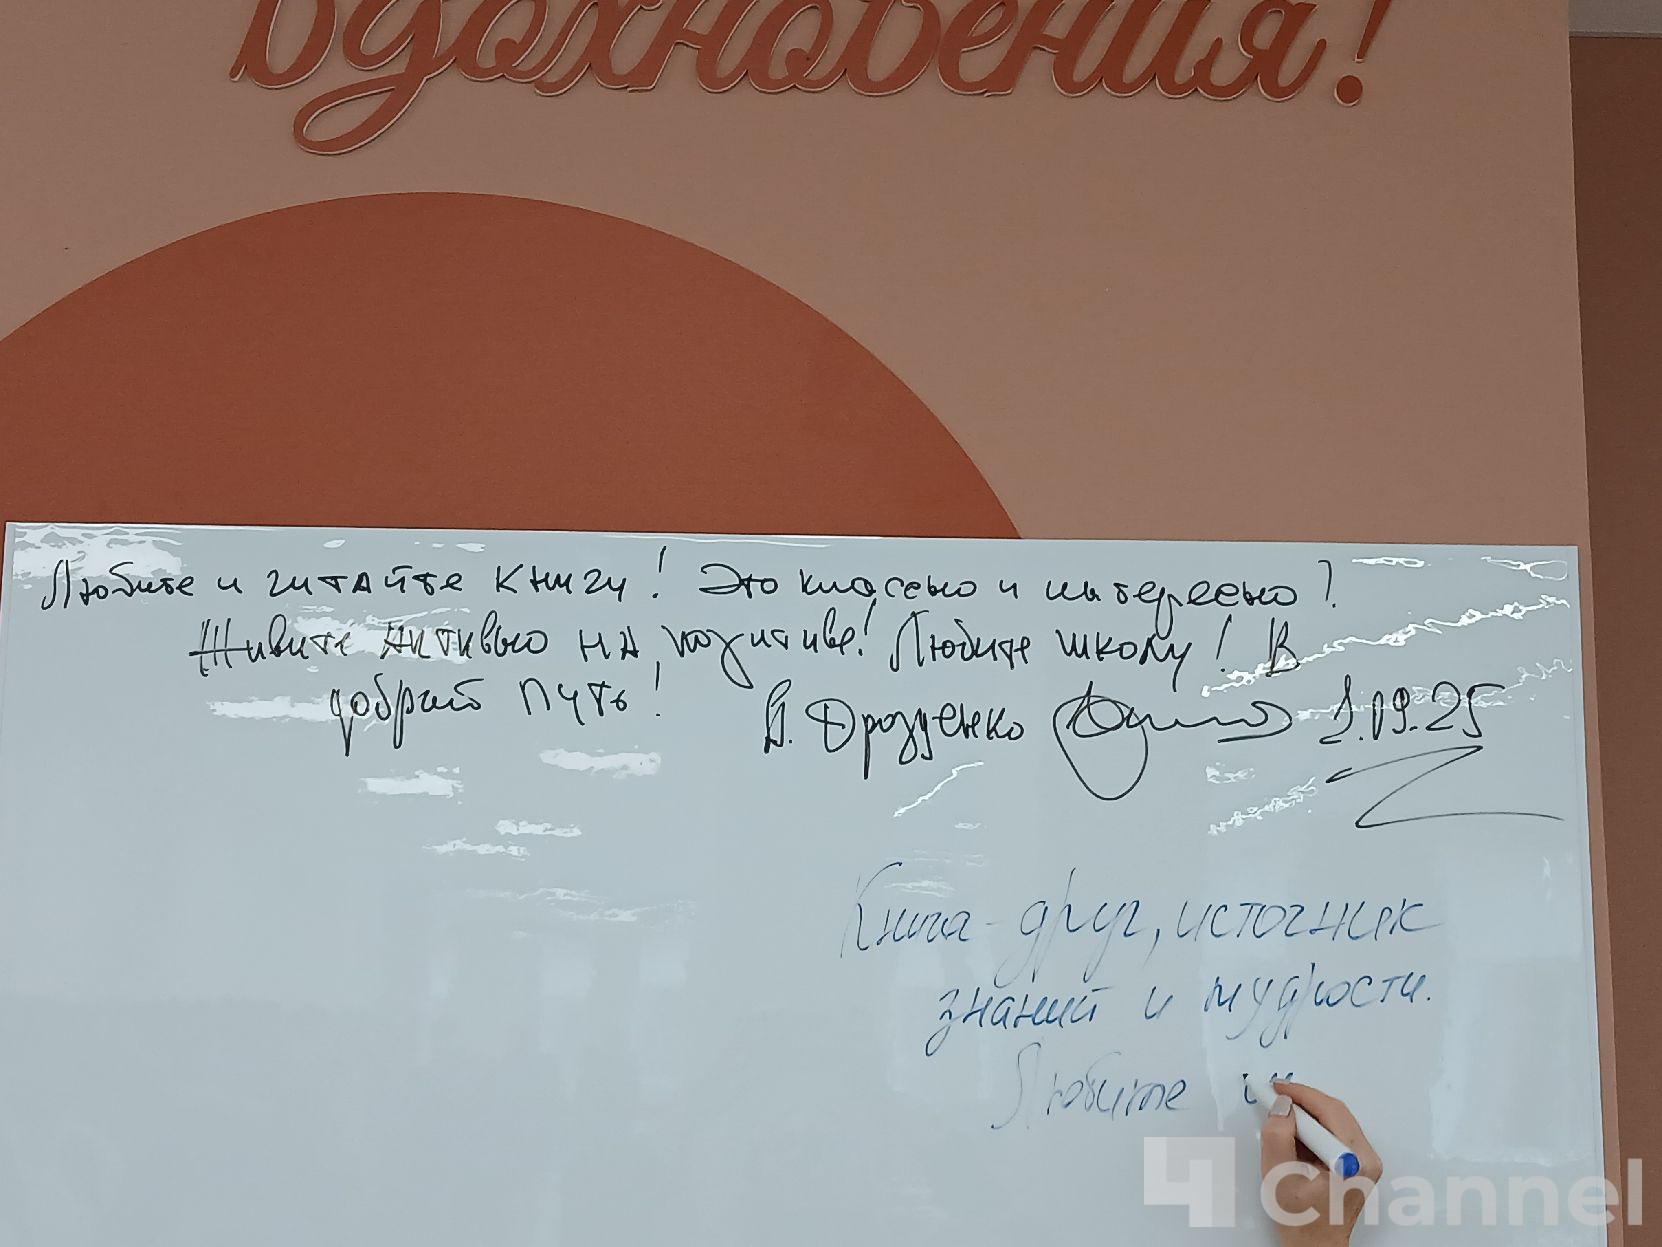 вдохновения!
Любите и читайте книгу! Это классно и интересно!
Живите активно на позитиве! Любите школу! В
добрый путь!
В. Дрозденко 1.09.25
Книга - друг, источник
знаний и мудрости.
Любите
Channel